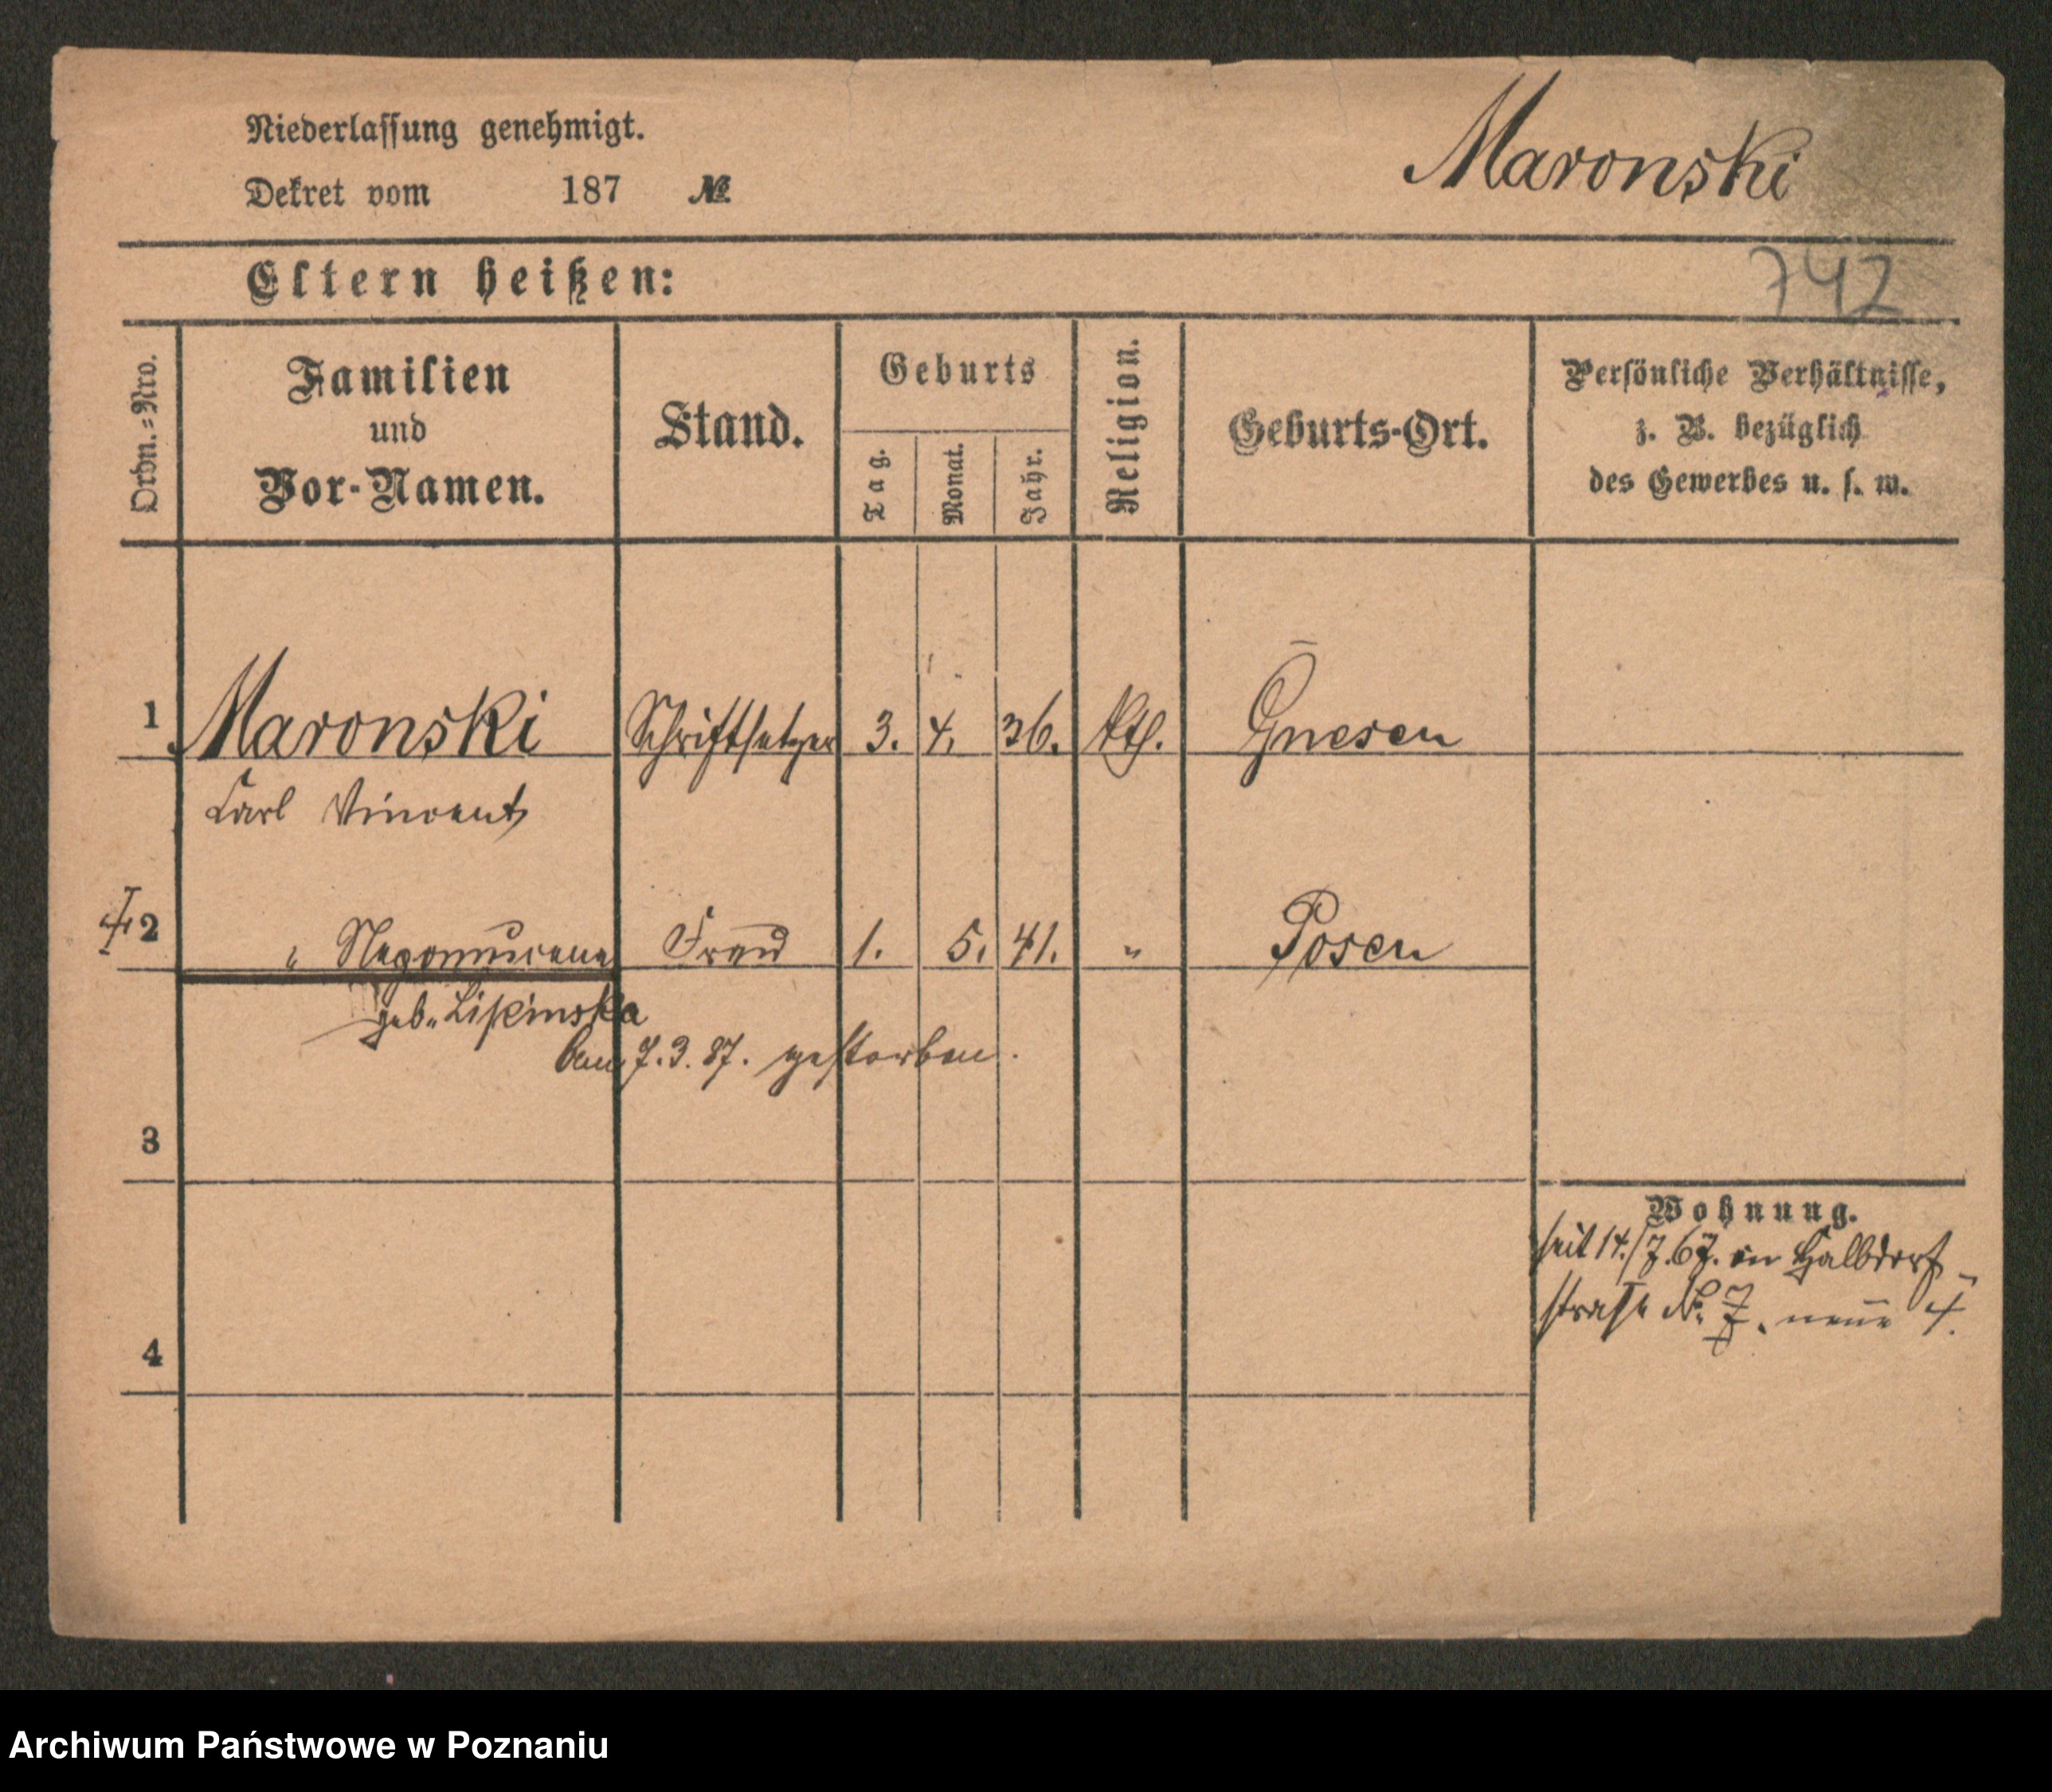 Niederlassung genehmigt.
Maronski
Dekret vom 187 №
Eltern heißen:
742
Ordn.-Nro.
Familien
und
Vor-Namen.
Stand.
Geburts
Tag.
Monat.
Jahr.
Religion.
Geburts-Ort.
Persönliche Verhältnisse,
z. B. bezüglich
des Gewerbes u. s. w.
1 Maronski Schriftsetzer 3. 4. 36. kth. Gnesen
Carl Vincent
2 " Nepomucena Frau 1. 5. 41. " Posen
geb. Lipinska
am 7. 3. 87. gestorben.
3
Wohnung.
seit 14./7.67. in Halbdorf-
straße № 7. neue 4.
4
Archiwum Państwowe w Poznaniu